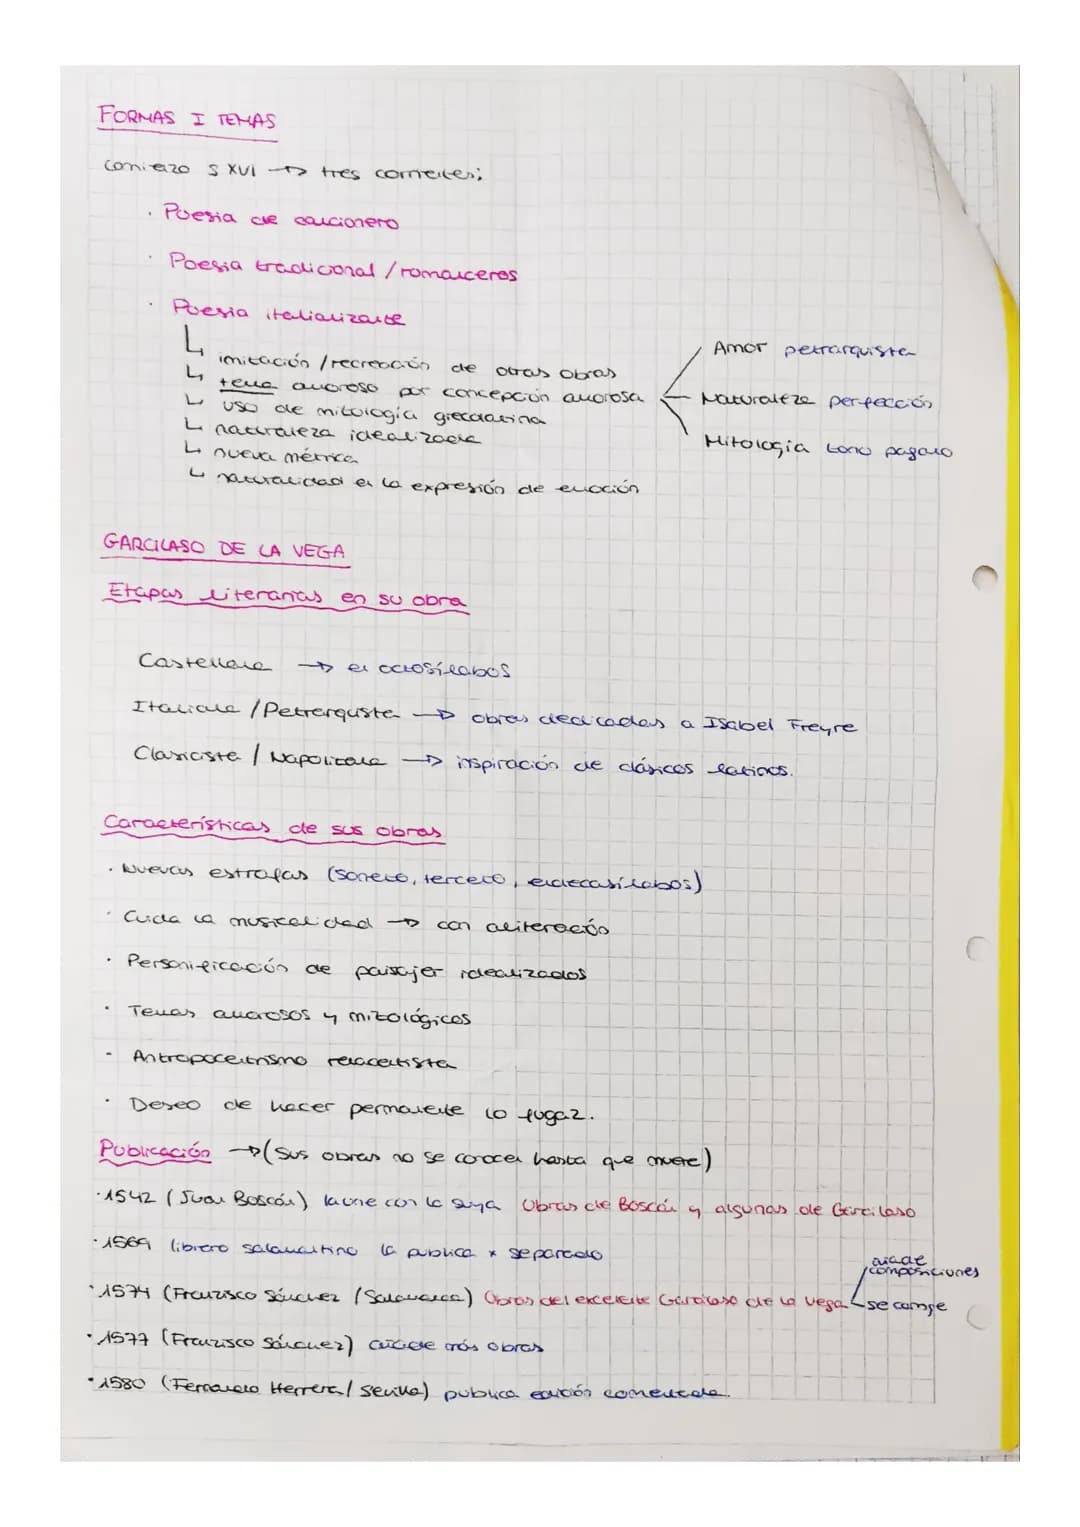 FORMAS I TEMAS
comienzo S XVI → tres corrientes:
· Poesia de cancionero
· Poesia tradicional / romanceros
· Poesia italianizante
↳ imitación / recreación de otras obras
↳ tema amoroso por concepción amorosa
Amor petrarquista
Naturaleza perfección
Mitología tono pagano
↳ uso de mitología grecolatina
↳ naturaleza idealizada
↳ nueva métrica
↳ naturalidad en la expresión de emoción
GARCILASO DE LA VEGA
Etapas literarias en su obra
Castellana → en octosílabos
Italiana / Petrarquista → obras dedicadas a Isabel Freyre
Clasicista / Napolitana → inspiración de clásicos latinos.
Características de sus obras
· Nuevas estrofas (soneto, terceto, endecasílabos)
· Cuida la musicalidad → con aliteración
· Personificación de paisajes idealizados
· Temas amorosos y mitológicos
- Antropocentrismo renacentista
· Deseo de hacer permanente lo fugaz.
Publicación → (Sus obras no se conocen hasta que muere)
· 1542 (Juan Boscán) la une con la suya Obras de Boscán y algunas de Garcilaso
· 1569 librero salmantino la publica x separado
· 1574 (Franzisco Sánchez / Salamanca) Obras del excelente Garcilaso de la Vega
añade composiciones
se corrige
· 1577 (Franzisco Sánchez) añade más obras
· 1580 (Fernando Herrera / Sevilla) publica edición comentada.